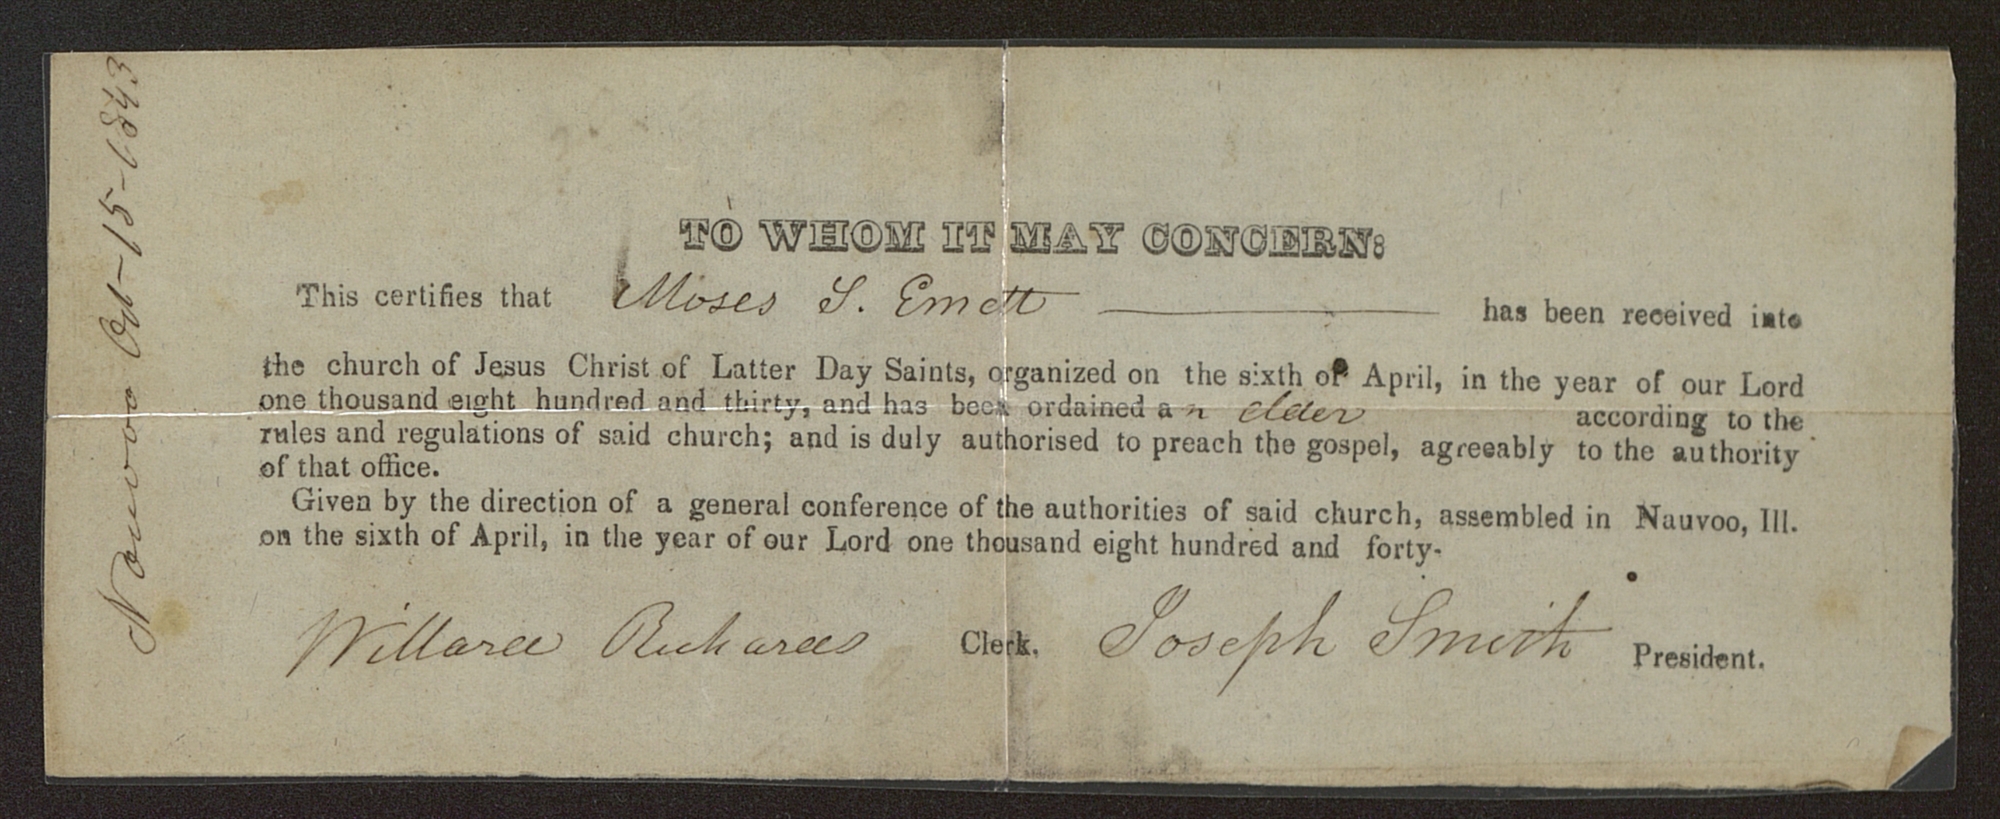 Nauvoo Oct-15-1843
TO WHOM IT MAY CONCERN:
This certifies that Moses S. Emett has been received into
the church of Jesus Christ of Latter Day Saints, organized on the sixth of April, in the year of our Lord
one thousand eight hundred and thirty, and has been ordained an elder according to the
rules and regulations of said church; and is duly authorised to preach the gospel, agreeably to the authority
of that office.
Given by the direction of a general conference of the authorities of said church, assembled in Nauvoo, Ill.
on the sixth of April, in the year of our Lord one thousand eight hundred and forty-
Willard Richards Clerk. Joseph Smith President.